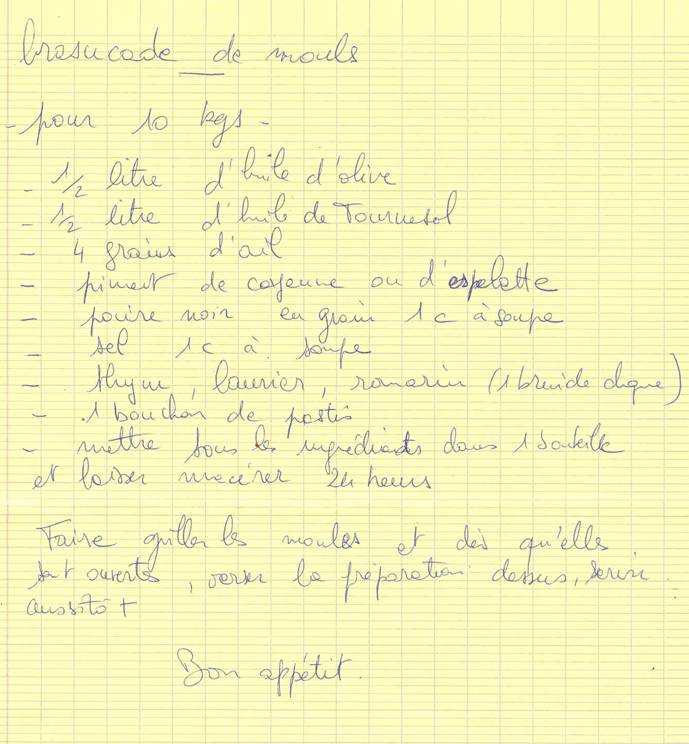 brasucade de mouls
- pour 10 kgs -
- 1/2 litre d'huile d'olive
- 1/2 litre d'huile de Tournesol
- 4 grains d'ail
- piment de cayenne ou d'espelette
- poivre noir en grain 1 c à soupe
- sel 1 c à soupe
- thym, laurier, romarin (1 brin de chaque)
- 1 bouchon de pastis
- mettre tous les ingrédients dans 1 bouteille
et laisser macérer 24 heures
Faire griller les moules et dès qu'elles
sont ouvertes, verser la préparation dessus, servir
aussitôt
Bon appétit.